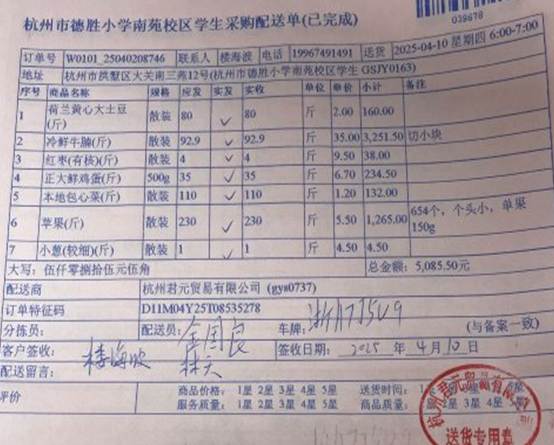 杭州市德胜小学南苑校区学生采购配送单(已完成)
039878
订单号 W0101_25040208746 联系人 楼海波 电话 19967491491 送货 2025-04-10 星期四 6:00-7:00
地址 杭州市拱墅区大关南三苑12号(杭州市德胜小学南苑校区学生 GSJY0163)
序号 商品名称 规格 应发 实发 实收 单位 单价 小计 备注
1 荷兰黄心大土豆(斤) 散装 80 ✓ 80 斤 2.00 160.00
2 冷鲜牛腩(斤) 散装 92.9 ✓ 92.9 斤 35.00 3,251.50 切小块
3 红枣(有核)(斤) 散装 4 ✓ 4 斤 9.50 38.00
4 正大鲜鸡蛋(斤) 500g 35 ✓ 35 斤 6.70 234.50
5 本地包心菜(斤) 散装 110 ✓ 110 斤 1.20 132.00
6 苹果(斤) 散装 230 ✓ 230 斤 5.50 1,265.00 654个，个头小，单果150g
7 小葱(较细)(斤) 散装 1 ✓ 1 斤 4.50 4.50
大写：伍仟零捌拾伍元伍角 总金额：5,085.50元
配送商 杭州君元贸易有限公司 (gys0737)
订单特征码 D11M04Y25T08535278
分拣员： 配送员：金国良 车牌：浙A775U9 (与备案一致)
客户签收：楼海波 林六 签收日期：2025 年 4 月 10 日
配送留言：
评价 商品价格：1星 2星 3星 4星 5星 送货时间：1星 5星
服务质量：1星 2星 3星 4星 5星 商品质量：
杭州君元贸易有限公司
送货专用章